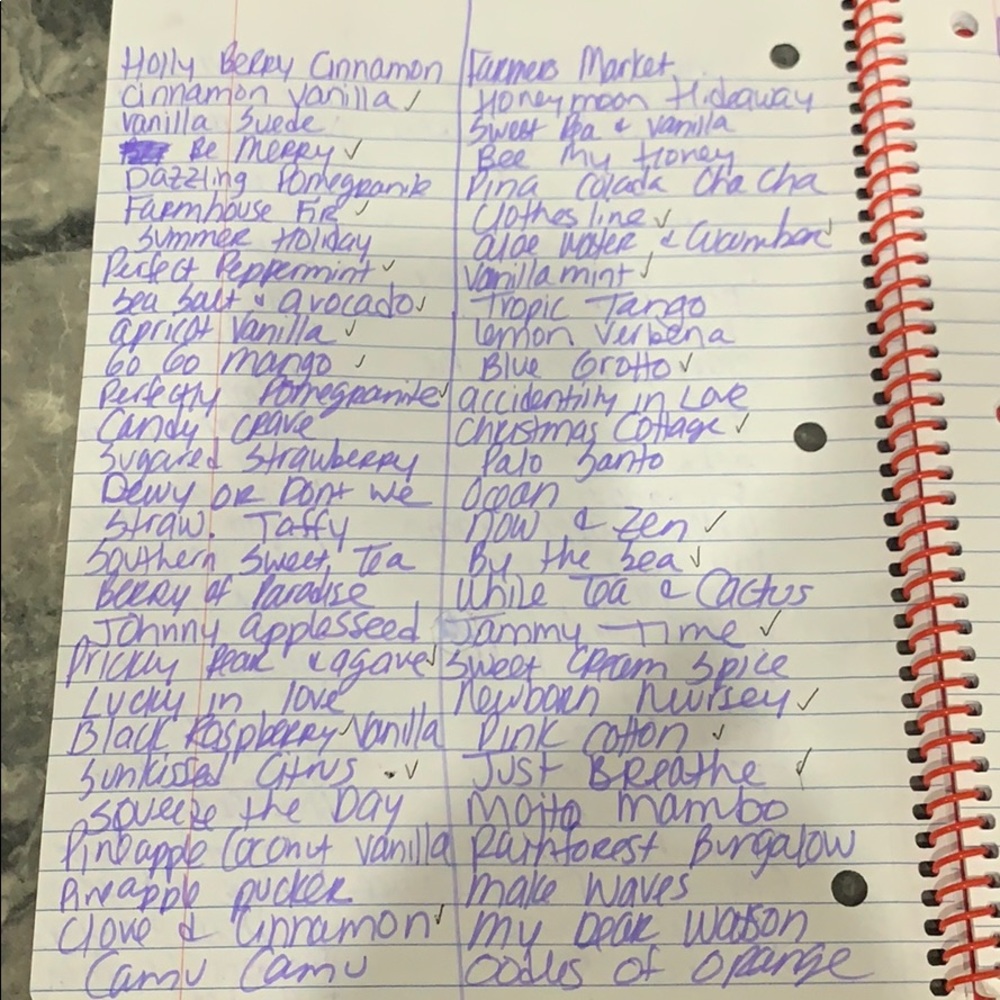 Holly Berry Cinnamon
Cinnamon Vanilla ✓
Vanilla Suede
Be Merry ✓
Dazzling Pomegranite
Farmhouse Fir ✓
Summer Holiday
Perfect Peppermint ✓
Sea Salt & avocado ✓
apricot vanilla ✓
Go Go mango ✓
Perfectly Pomegranite ✓
Candy Crave
Sugared Strawberry
Dewy or Dont we
Straw. Taffy
Southern Sweet Tea
Berry of Paradise
Johnny appleseed
Prickly Pear & agave ✓
Lucky in love
Black Raspberry Vanilla ✓
Sunkissed Citrus ✓
Squeeze the Day
Pineapple Coconut Vanilla
Pineapple pucker
Clove & Cinnamon ✓
Camu Camu
Farmers Market
Honeymoon Hideaway
Sweet Pea & Vanilla
Bee My Honey
Pina Colada Cha Cha
Clothes line ✓
aloe water & Cucumber ✓
Vanilla mint ✓
Tropic Tango
Lemon Verbena
Blue Grotto ✓
accidentily in Love
Christmas Cottage ✓
Palo Santo
Ocean
Now & Zen ✓
By the Sea ✓
While Tea & Cactus
Jammy Time ✓
Sweet Cream Spice
Newborn Nursey ✓
Pink Cotton ✓
Just Breathe ✓
Mojito Mambo
Rainforest Bungalow
make waves
my Dear Watson
Oodles of Orange